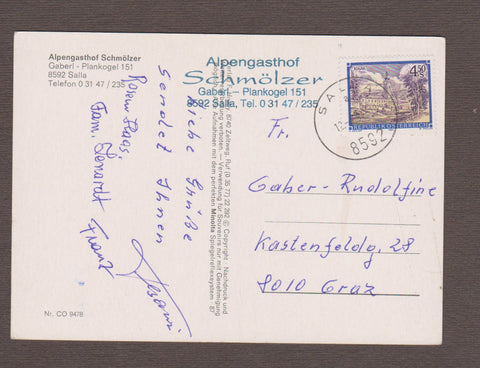 Alpengasthof Schmölzer
Gaberl - Plankogel 151
8592 Salla
Telefon 0 31 47 / 235
Alpengasthof
Schmölzer
Gaberl - Plankogel 151
8592 Salla, Tel. 0 31 47 / 235
4.50
REPUBLIK ÖSTERREICH
8592
Fr.
Gaber-Rudolfine
Kastenfeldg, 28
8010 Graz
liche Grüße
sendet Ihnen
Fam.
Franz
8740 Zeltweg, Ruf (0 35 77) 22 292 © Copyright · Nachdruck und
verboten. — Verwendung für Souvenirs nur mit Genehmigung
Aufnahmen mit dem perfekten Minolta Spiegelreflexsystem · 87
Nr. CO 9478